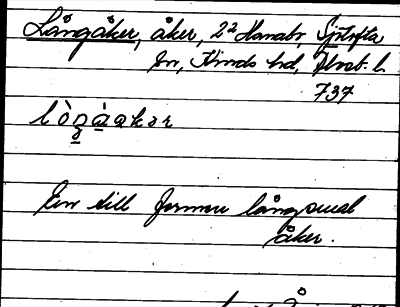 Långåker, åker, 2² Hanabr, Sjötofta
sn, Kinds hd, Älvsb. l.
737
En till formen långsmal
åker.